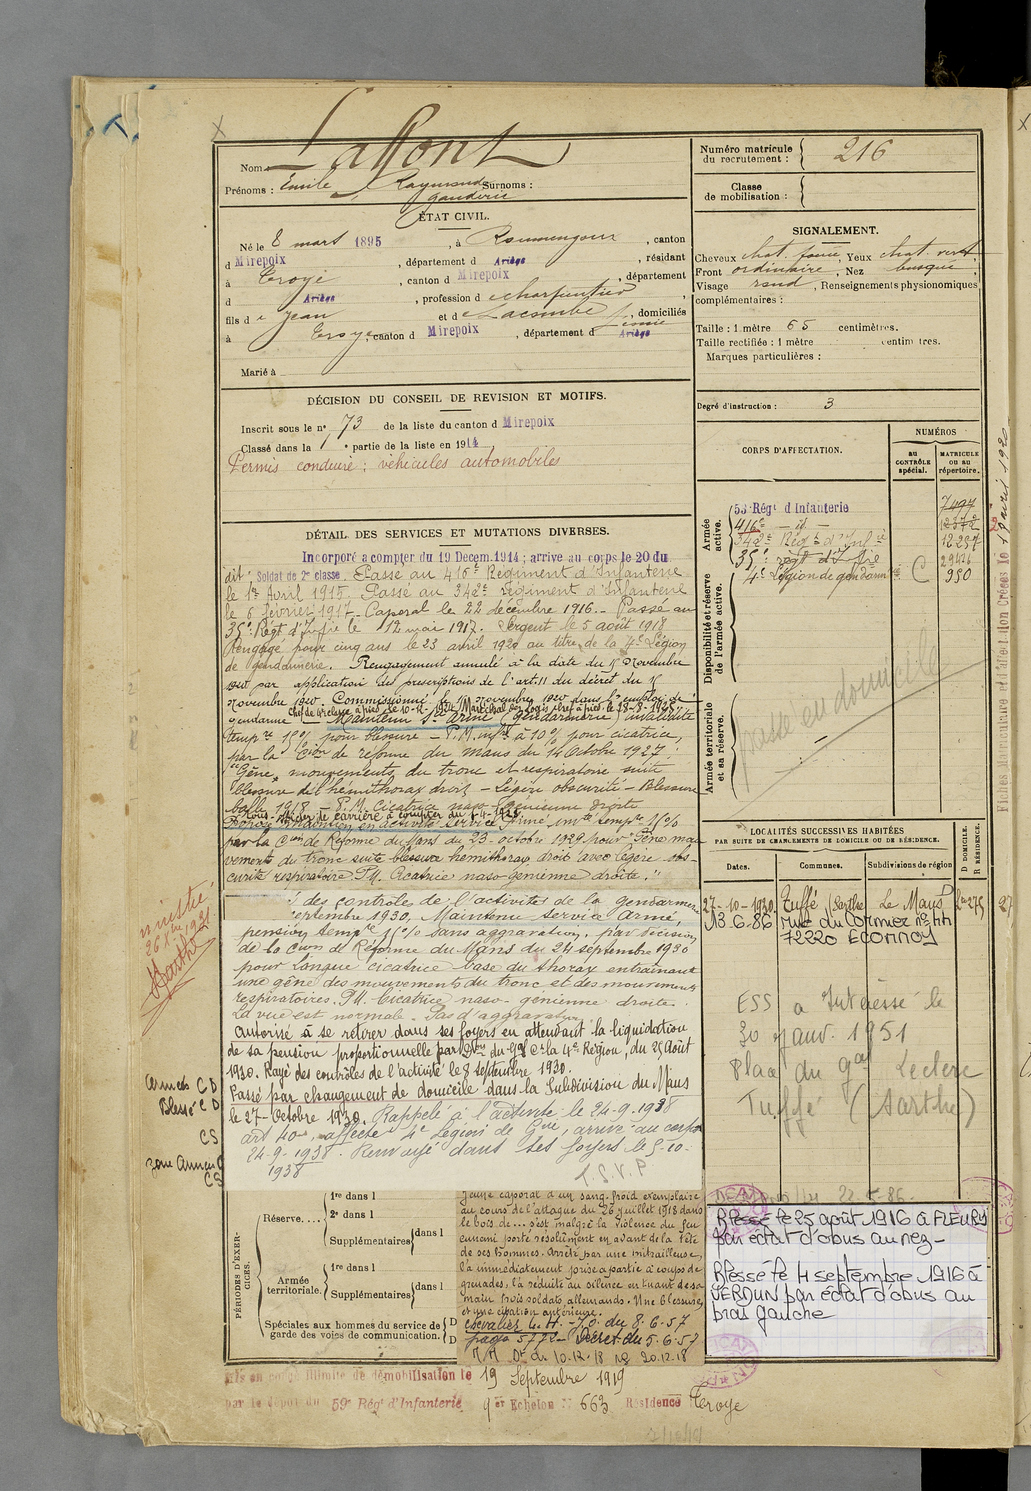 Laffont
Nom :
Prénoms : Emile Raymond Surnoms :
gendarme
ÉTAT CIVIL.
Né le 8 mars 1895, à Roumengoux, canton
d Mirepoix, département d Ariège, résidant
à Troye, canton d Mirepoix, département
d Ariège, profession d e charpentier
fils d e Jean et d e Lacombe, domiciliés
à Troye, canton d Mirepoix, département d Ariège
Marié à
DÉCISION DU CONSEIL DE REVISION ET MOTIFS.
Inscrit sous le n° 73 de la liste du canton d Mirepoix
Classé dans la 1e partie de la liste en 1914
Permis conduire : véhicules automobiles
DÉTAIL DES SERVICES ET MUTATIONS DIVERSES.
Incorporé a compter du 19 Decem. 1914 ; arrive au corps le 20 du
dit, Soldat de 2e classe. Passé au 416e Régiment d'Infanterie
le 1er Avril 1915. Passé au 342e régiment d'Infanterie
le 6 février 1917. Caporal le 22 décembre 1916. Passé au
35e Régt d'Infie le 12 mai 1917. Sergent le 5 août 1918
Rengagé pour cinq ans le 23 avril 1920 au titre de la 4e Légion
de gendarmerie. Rengagement annulé à la date du 15 Novembre
1920 par application des prescriptions de l'art. 11 du décret du 15
Novembre 1920. Commissionné le 15 Novembre 1920 dans l'emploi de
Chef de brigade à pied le 10-12-1924. Maréchal des logis chef à pied le 28-8-1928.
gendarme. Maintenu Sce Armé (gendarmerie) invalidité
tempre 15% pour blessure - P.M. infre à 10% pour cicatrice,
par la Cion de réforme du Mans du 14 Octobre 1927.
"Gêne mouvements du tronc et respiratoire suite
blessure de l'hémithorax droit - Légère obscurité - Blessure
balle 1918 - P.M. Cicatrice naso-génienne droite
Sous-officier de carrière à compter du 1-4-1928
par la Cion de Réforme du Mans du 23 octobre 1929 pour "Gêne mou-
vements du tronc suite blessure hémithorax droit avec légère obs-
curité respiratoire. P.M. Cicatrice naso-génienne droite."
des contrôles de l'activité de la gendarmerie
septembre 1930. Maintenu service Armé
pension tempre 15% sans aggravation, par décision
de la Cion de Réforme du Mans du 24 septembre 1930
pour longue cicatrice base du thorax entrainant
une gêne des mouvements du tronc et des mouvements
respiratoires. P.M. Cicatrice naso-génienne droite.
La vue est normale. Pas d'aggravation
Autorisé à se retirer dans ses foyers en attendant la liquidation
de sa pension proportionnelle par Don du Gal Ct la 4e Région, du 25 Août
1930. Rayé des contrôles de l'activité le 8 septembre 1930.
Passé par changement de domicile dans la Subdivision du Mans
le 27 Octobre 1930. Rappelé à l'activité le 24-9-1938
art 40, affecté 4e Légion de Gie, arrivé au corps
24-9-1938. Renvoyé dans ses foyers le 5-10-
1938
T.S.V.P
PÉRIODES D'EXERCICES.
Réserve....
1re dans l
2e dans l
Supplémentaires dans l
Armée territoriale.
1re dans l
Supplémentaires dans l
Spéciales aux hommes du service de
garde des voies de communication.
D
D
Jeune caporal d'un sang-froid exemplaire
au cours de l'attaque du 26 juillet 1918 dans
le bois de ... s'est malgré la violence du feu
ennemi porté résolument en avant de la tête
de ses hommes. Arrêté par une mitrailleuse,
l'a immédiatement prise à partie à coups de
grenades, l'a réduite au silence en tuant de sa
main trois soldats allemands. Une blessure
et une citation antérieure.
chevalier L.H. - J.O. du 8.6.57
page 5772 - Décret du 5.6.57
M M Dt du 10.12.18 JO 20.12.18
Mis en congé illimité de démobilisation le 19 Septembre 1919
par le dépôt du 59e Régt d'Infanterie 9er Echelon N° 663 Résidence Troye
Numéro matricule
du recrutement : 216
Classe
de mobilisation :
SIGNALEMENT.
Cheveux chat. foncé, Yeux chat. vert
Front ordinaire, Nez busqué
Visage rond, Renseignements physionomiques
complémentaires :
Taille : 1 mètre 65 centimètres.
Taille rectifiée : 1 mètre centimètres.
Marques particulières :
Degré d'instruction : 3
CORPS D'AFFECTATION.
NUMÉROS
AU CONTRÔLE spécial.
MATRICULE OU AU répertoire.
Armée active.
53 Régt d Infanterie 7497
416e - id - 12372
342e Régt d'Infie 12237
35e régt d'Infie
4e Légion de gendarmerie C 950
Disponibilité et réserve de l'armée active.
Armée territoriale et sa réserve.
passe en domicile
LOCALITÉS SUCCESSIVES HABITÉES
PAR SUITE DE CHANGEMENTS DE DOMICILE OU DE RÉSIDENCE.
Dates. Communes. Subdivisions de région
D DOMICILE. R RÉSIDENCE.
27-10-1930. Tuffé (Sarthe) Le Mans
13.6.86 rue du Cormier n° 44
72220 ECOMMOY
ESS a Intéressé le
30 janv. 1951
Place du Gal Leclerc
Tuffé (Sarthe)
22-5-86
Blessé le 25 août 1916 à FLEURY
par éclat d'obus au nez -
Blessé le 4 septembre 1916 à
VERDUN par éclat d'obus au
bras gauche
Blessé C D
CS
CS